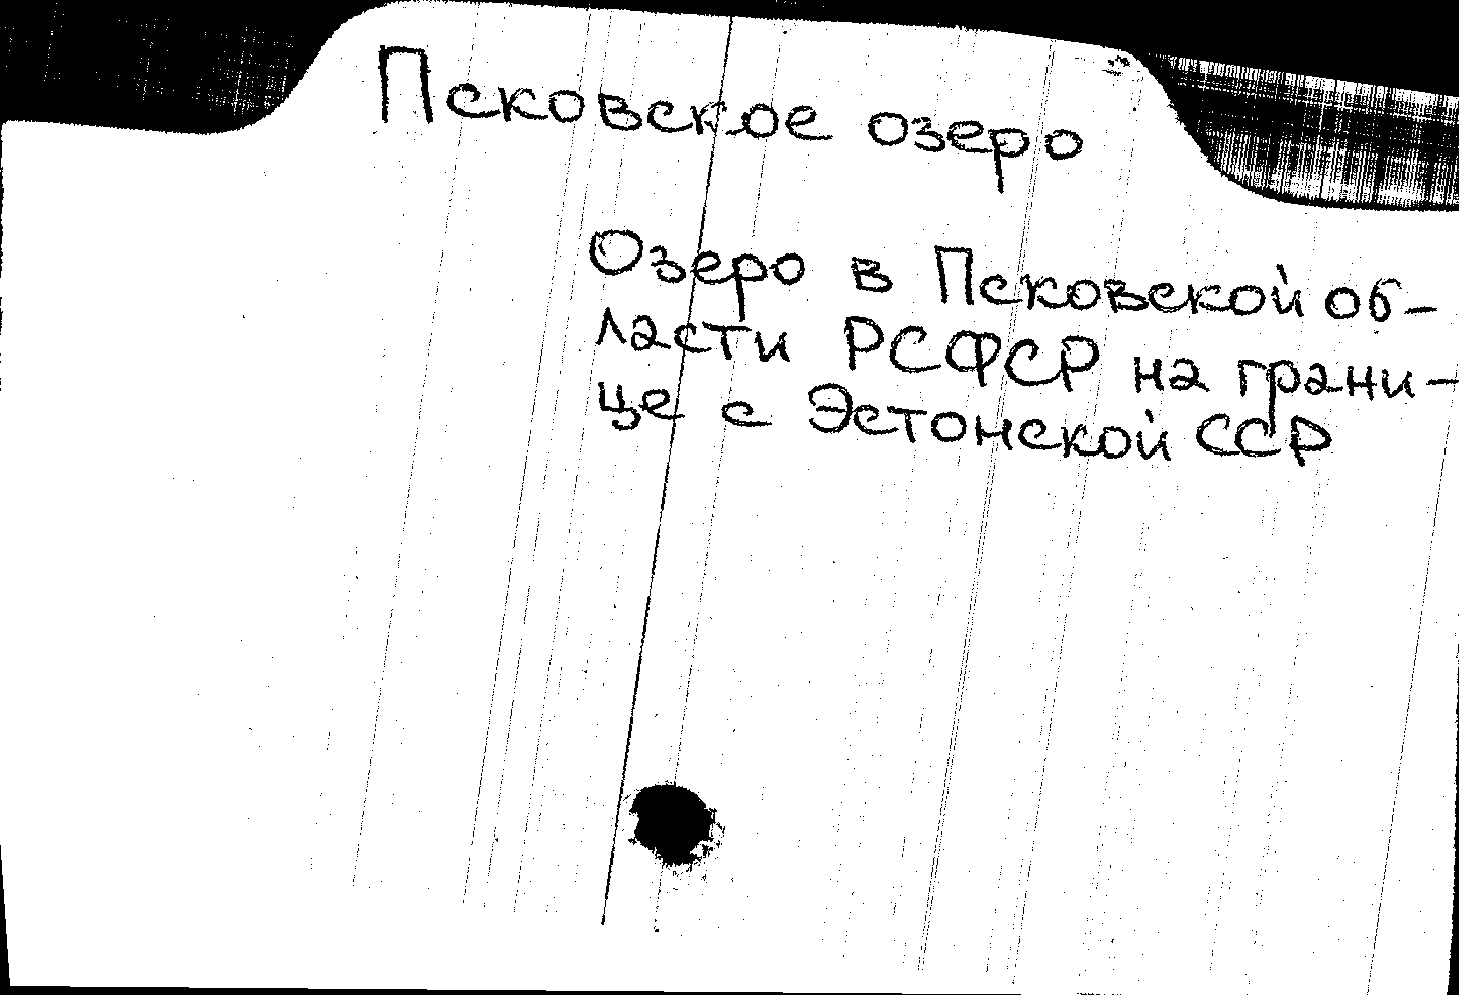 Псковское озеро
Озеро в Псковской об-
ласти РСФСР на грани-
це с Эстонской ССР